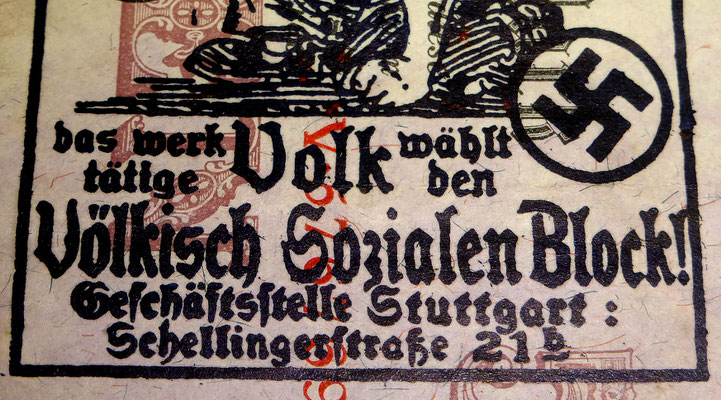 das werk tätige Volk wählt den
Völkisch Sozialen Block!
Geschäftsstelle Stuttgart:
Schellingerstraße 21b